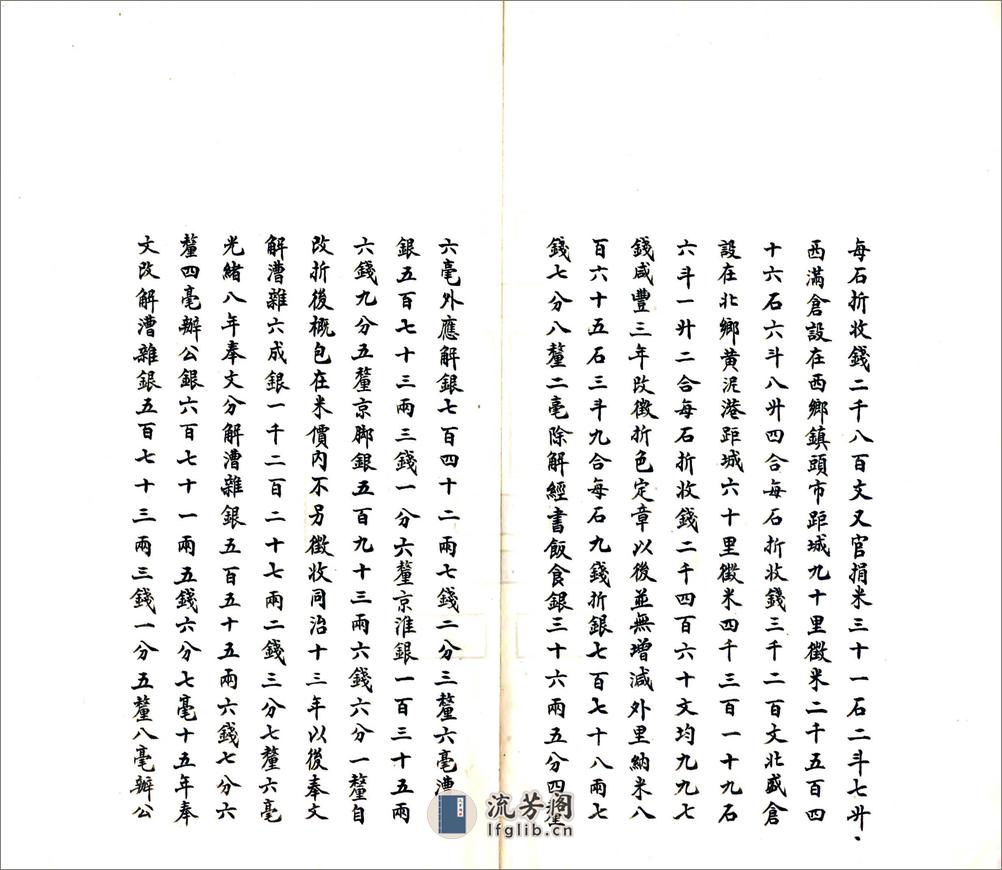 每石折收錢二千八百文又官捐米三十一石二斗七升
西滿倉設在西鄉鎮頭市距城九十里徵米二千五百四
十六石六斗八升四合每石折收錢三千二百文北盛倉
設在北鄉黃泥港距城六十里徵米四千三百一十九石
六斗一升二合每石折收錢二千四百六十文均九九七
錢咸豐三年改徵折色定章以後並無增減外里納米八
百六十五石三斗九合每石九錢折銀七百七十八兩七
錢七分八釐二毫除解經書飯食銀三十六兩五分四釐
六毫外應解銀七百四十二兩七錢二分三釐六毫漕
銀五百七十三兩三錢一分六釐京淮銀一百三十五兩
六錢九分五釐京腳銀五百九十三兩六錢六分一釐自
改折後概包在米價內不另徵收同治十三年以後奉文
解漕雜六成銀一千二百二十七兩二錢三分七釐六毫
光緒八年奉文分解漕雜銀五百五十五兩六錢七分六
釐四毫辦公銀六百七十一兩五錢六分七毫十五年奉
文改解漕雜銀五百七十三兩三錢一分五釐八毫辦公
流芳閣
lfglib.cn